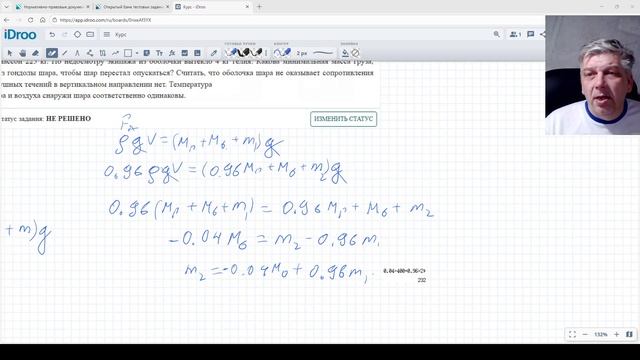 Нормативно-правовые докумен
Открытый банк тестовых задан
Курс - iDroo
https://app.idroo.com/ru/boards/
iDroo
Курс
2 px
массой 225 кг. По недосмотру экипажа из оболочки вытекло 4 кг гелия. Какова минимальная масса груза,
з гондолы шара, чтобы шар перестал опускаться? Считать, что оболочка шара не оказывает сопротивления
ушных течений в вертикальном направлении нет. Температура
ра и воздуха снаружи шара соответственно одинаковы.
татус задания: НЕ РЕШЕНО
ИЗМЕНИТЬ СТАТУС
ρgV = (Mг + Mб + m₁)g
0.96 ρgV = (0.96Mг + Mб + m₂)g
0.96 (Mг + Mб + m₁) = 0.96 Mг + Mб + m₂
+ m)g
-0.04 Mб = m₂ - 0.96 m₁
m₂ = -0.04 Mб + 0.96 m₁
232
132%